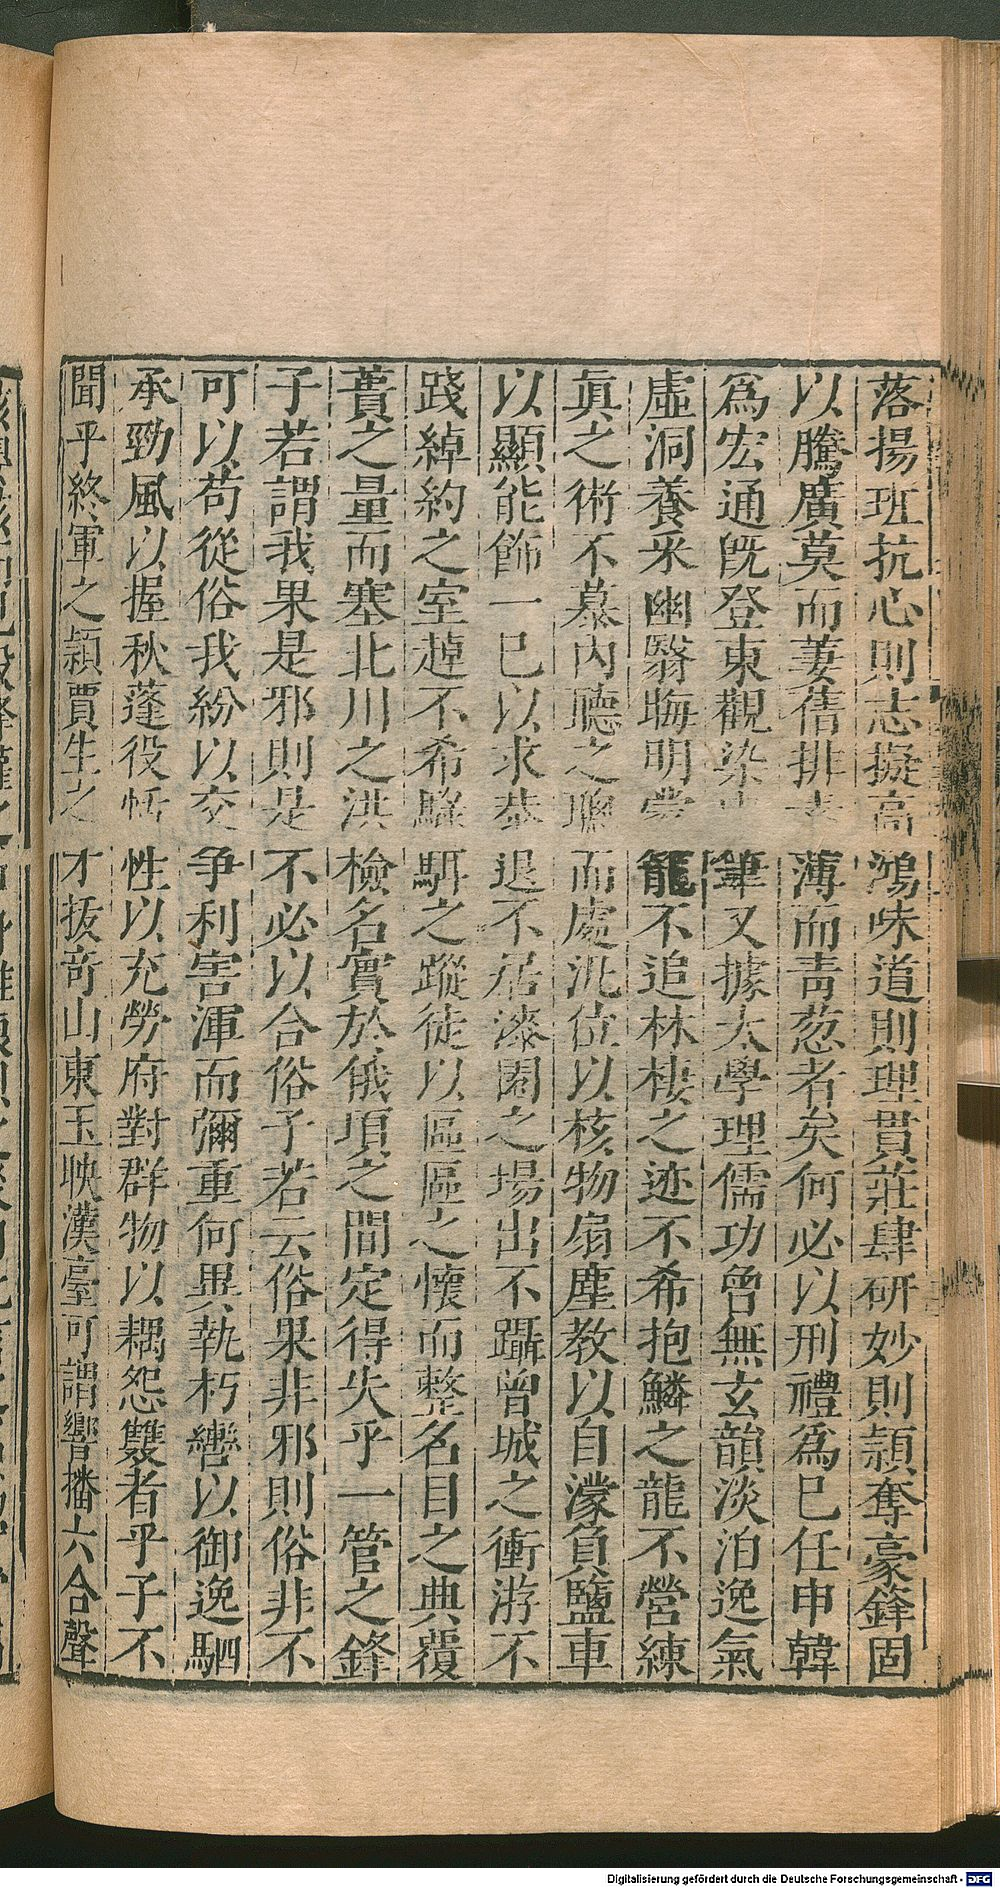 落揚班抗心則志擬高鴻味道則理貫莊肆研妙則穎奪豪鋒固
以騰廣莫而萋蒨排薄而青葱者矣何必以刑禮爲已任申韓
爲宏通旣登東觀染筆又據太學理儒功曾無玄韻淡泊逸氣
虛洞養采幽翳晦明蒙籠不追林棲之迹不希抱鱗之龍不營練
眞之術不慕內聽之聰而處汎位以核物扇塵教以自濛負鹽車
以顯能飾一已以求恭退不居漆園之場出不躡曾城之衝游不
踐綽約之室趠不希騄駬之蹤徒以區區之懷而整名目之典覆
蕢之量而塞北川之洪檢名實於俄頃之間定得失乎一管之鋒
子若謂我果是邪則是不必以合俗子若云俗果非邪則俗非不
可以苟從俗我紛以交争利害渾而彌重何異執朽轡以御逸駟
承勁風以握秋蓬役恬性以充勞府對群物以耦怨雙者乎子不
聞乎終軍之穎賈生之才拔竒山東玉映漢臺可謂響播六合聲
Digitalisierung gefördert durch die Deutsche Forschungsgemeinschaft - DFG